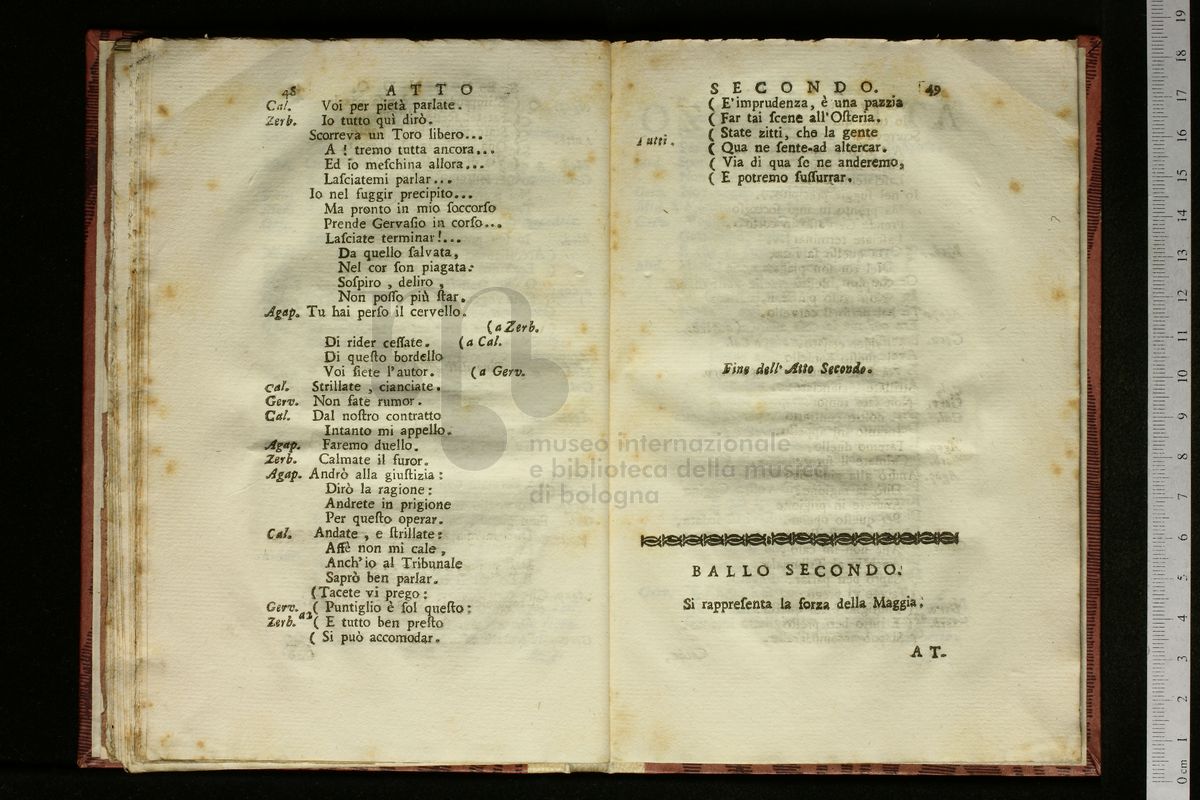 48 ATTO
Cal. Voi per pietà parlate.
Zerb. Io tutto quì dirò.
Scorreva un Toro libero...
A! tremo tutta ancora...
Ed io meſchina allora...
Laſciatemi parlar...
Io nel fuggir precipito...
Ma pronto in mio ſoccorſo
Prende Gervaſio in corſo...
Laſciate terminar!...
Da quello ſalvata,
Nel cor ſon piagata:
Soſpiro, deliro,
Non poſſo più ſtar.
Agap. Tu hai perſo il cervello.
(a Zerb.
Di rider ceſſate. (a Cal.
Di queſto bordello
Voi ſiete l'autor. (a Gerv.
Cal. Strillate, cianciate.
Gerv. Non fate rumor.
Cal. Dal noſtro contratto
Intanto mi appello.
Agap. Faremo duello.
Zerb. Calmate il furor.
Agap. Andrò alla giuſtizia:
Dirò la ragione:
Andrete in prigione
Per queſto operar.
Cal. Andate, e ſtrillate:
Affè non mi cale,
Anch'io al Tribunale
Saprò ben parlar.
(Tacete vi prego:
Gerv. ( Puntiglio è ſol queſto:
Zerb. a2 ( E tutto ben preſto
( Si può accomodar.
SECONDO. 49
( E' imprudenza, è una pazzia
( Far tai ſcene all'Oſteria.
( State zitti, che la gente
Tutti. ( Qua ne ſente ad altercar.
( Via di qua ſe ne anderemo,
( E potremo ſuſſurrar.
Fine dell' Atto Secondo.
BALLO SECONDO.
Si rappreſenta la forza della Maggia.
AT-
museo internazionale
e biblioteca della musica
di bologna
0 cm 1 2 3 4 5 6 7 8 9 10 11 12 13 14 15 16 17 18 19